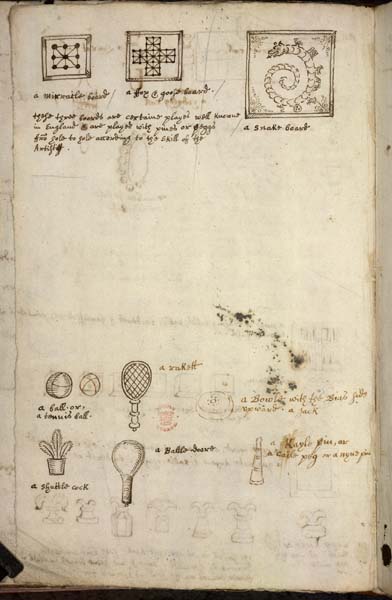 a mirracle board
a fox & goose board.
a snake board
these three boards are certaine playes well knowne
in England & are played with pines or pegs
from hole to hole according to the skill of the
Artist.
a rackett
a ball. or.
a tennis ball.
a Bowle with the Bias side
upward. a Jack
a shuttle cock
a Battle-doore
a Kayle pin, or
a peg or a nyne pin